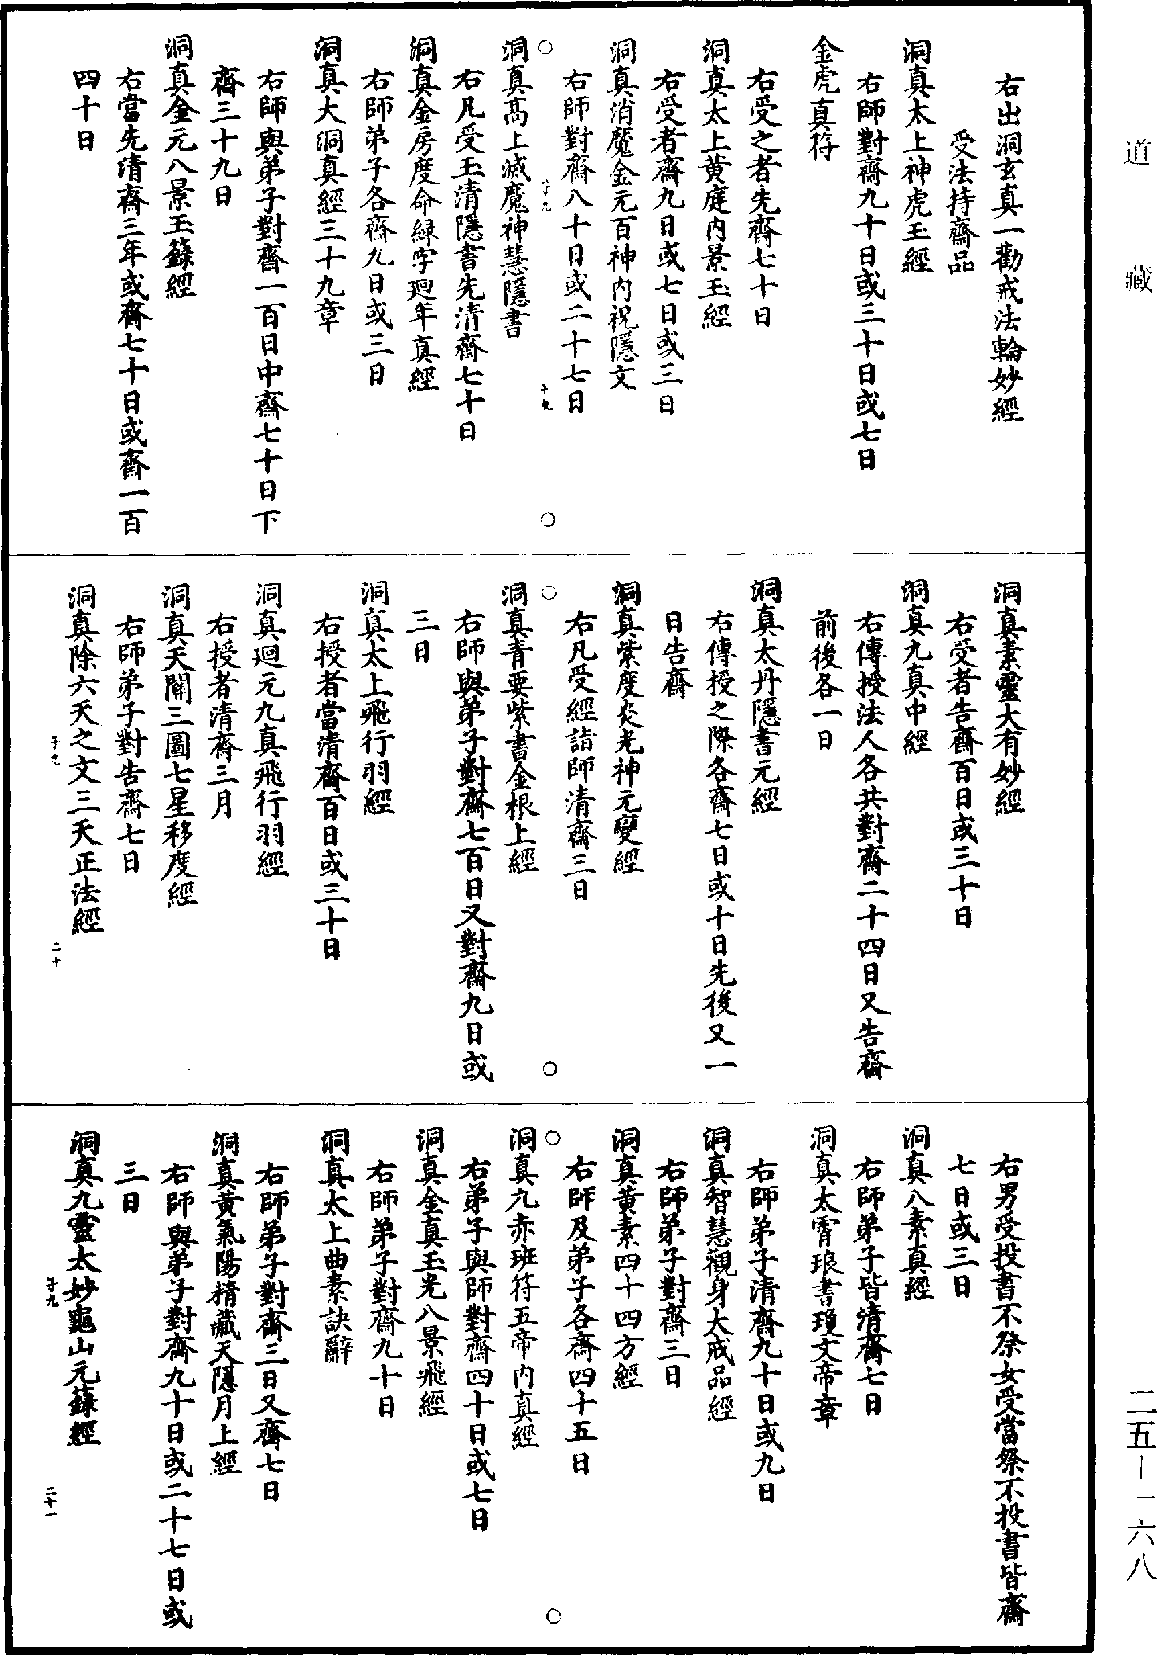 道藏
右出洞玄真一勸戒法輪妙經
受法持齋品
洞真太上神虎玉經
右師對齋九十日或三十日或七日
金虎真符
右受之者先齋七十日
洞真太上黃庭內景玉經
右受者齋九日或七日或三日
洞真消魔金元百神內祝隱文
右師對齋八十日或二十七日
洞真高上滅魔神慧隱書
右凡受玉清隱書先清齋七十日
洞真金房度命綠字迴年真經
右師弟子各齋九日或三日
洞真大洞真經三十九章
右師與弟子對齋一百日中齋七十日下
齋三十九日
洞真金元八景玉籙經
右當先清齋三年或齋七十日或齋一百
四十日
洞真素靈大有妙經
右受者告齋百日或三十日
洞真九真中經
右傳授法人各共對齋二十四日又告齋
前後各一日
洞真太丹隱書元經
右傳授之際各齋七日或十日先後又一
日告齋
洞真紫度炎光神元變經
右凡受經詣師清齋三日
洞真青要紫書金根上經
右師與弟子對齋七百日又對齋九日或
三日
洞真太上飛行羽經
右授者當清齋百日或三十日
洞真迴元九真飛行羽經
右授者清齋三月
洞真天關三圖七星移度經
右師弟子對告齋七日
洞真除六天之文三天正法經
二十
右男受投書不祭女受當祭不投書皆齋
七日或三日
洞真八素真經
右師弟子皆清齋七日
洞真太霄琅書瓊文帝章
右師弟子清齋九十日或九日
洞真智慧觀身大戒品經
右師弟子對齋三日
洞真黃素四十四方經
右師及弟子各齋四十五日
洞真九赤班符五帝內真經
右弟子與師對齋四十日或七日
洞真金真玉光八景飛經
右師弟子對齋九十日
洞真太上曲素訣辭
右師弟子對齋三日又齋七日
洞真黃氣陽精藏天隱月上經
右師與弟子對齋九十日或二十七日或
三日
洞真九靈太妙龜山元籙經
二十一
二五—一六八